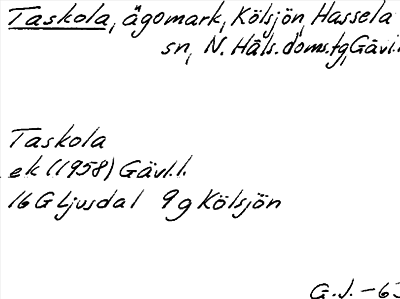 Taskola, ägomark, Kölsjön, Hassela
sn, N. Häls. doms.tg, Gävl.
Taskola
ek (1958) Gävl.l.
16 G Ljusdal 9 g Kölsjön
G.J. -63